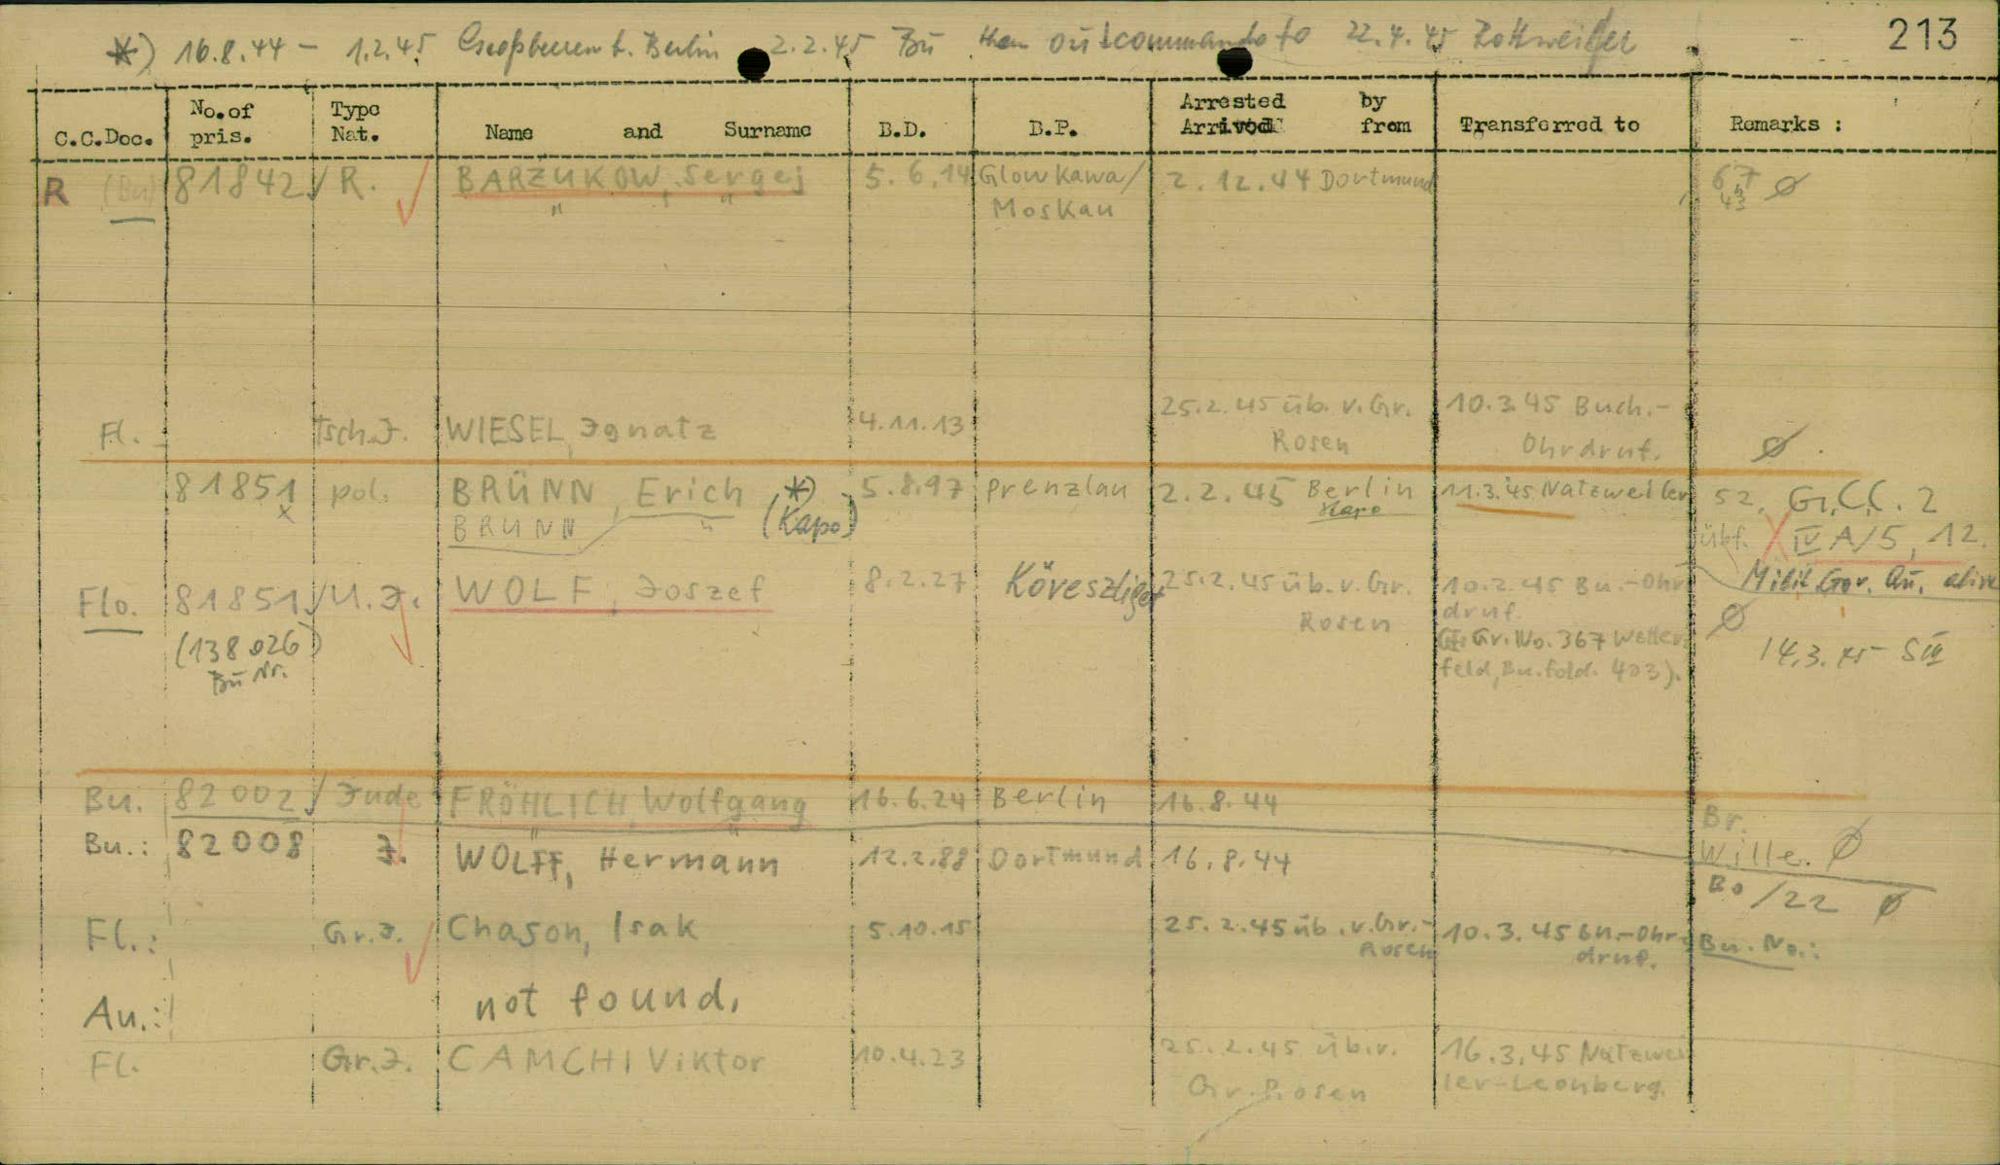 *) 16.8.44 - 1.2.45 Berlin 2.2.45 Bu then outcommando to 22.4.45
213
C.C.Doc. No. of pris. Type Nat. Name and Surname B.D. B.P. Arrested by Arrived from Transferred to Remarks :
R (Bu) 81842/ R. BARZUKOW, Sergej 5.6.14 Glowkawa/ 2.12.44 Dortmund 67
" " Moskau 43
Fl. Tsch.J. WIESEL, Ignatz 4.11.13 25.2.45 üb. v. Gr. 10.3.45 Buch.-
Rosen Ohrdruf. Ø
81851 pol. BRÜNN, Erich *) 5.8.97 Prenzlau 2.2.45 Berlin 11.3.45 Natzweiler 52, G.C.C. 2
x BRUNN " (Kapo) übf. X IV A/5, 12.
Flo. 81851/ U.J. WOLF, Joszef 8.2.27 Köveszliget 25.2.45 üb. v. Gr. 10.2.45 Bu.-Ohr Milit Gov. Au. alive
Rosen druf. Ø
(138026) Gr. No. 367 Wetter- 14.3.45 SIII
Bu Nr. feld, Bu. fold. 403).
Bu. 82002/ Jude FRÖHLICH, Wolfgang 16.6.24 Berlin 16.8.44 Br.
Bu.: 82008 J. WOLFF, Hermann 12.2.88 Dortmund 16.8.44 Wille. Ø
Bo/22 Ø
Fl.: Gr.J. Chason, Isak 5.10.15 25.2.45 üb. v. Gr.- 10.3.45 Bu.-Ohr- Bu. No.:
Rosen druf.
Au.: not found.
Fl. Gr.J. CAMCHI Viktor 10.4.23 25.2.45 üb. v. 16.3.45 Natzwei
Gr. Rosen ler-Leonberg.